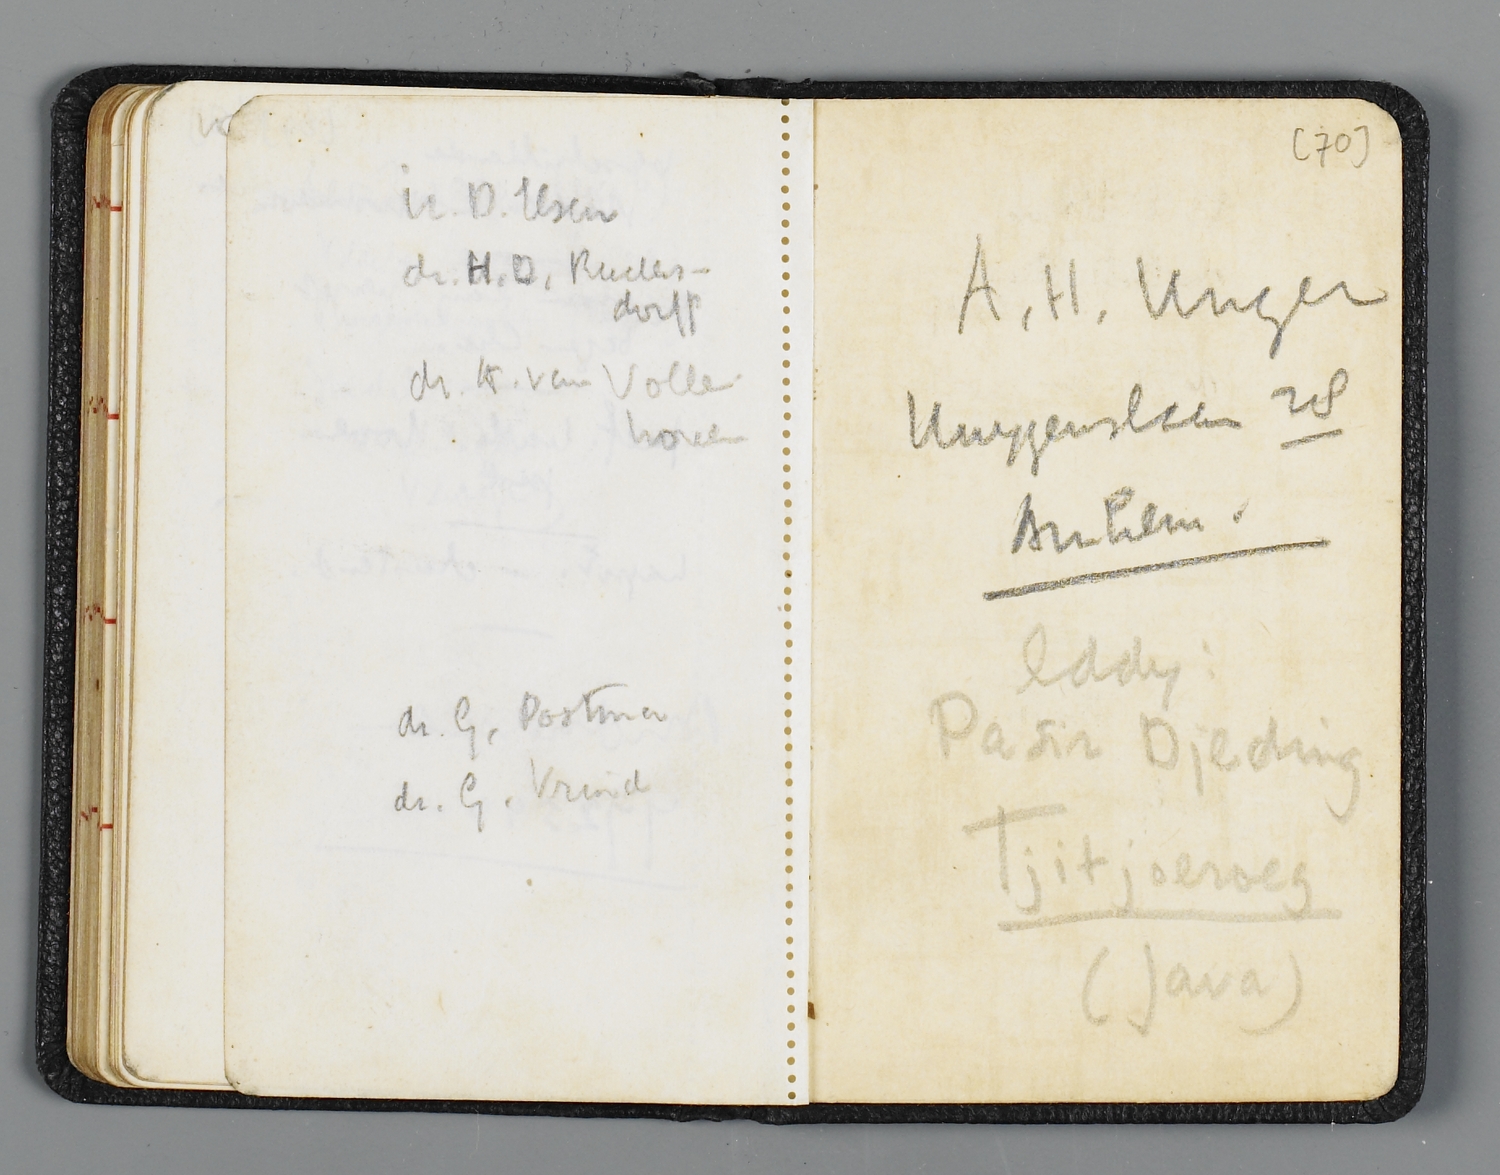 ir. D. Ilsen
dr. H. D. Ruders-
dorff
dr. H. van Volle
horen
dr. G. Postma
dr. G. Vrind
[70]
A. H. Unger
28
Arnhem.
Eddy:
Pasir Djeding
Tjitjoeroeg
(Java)